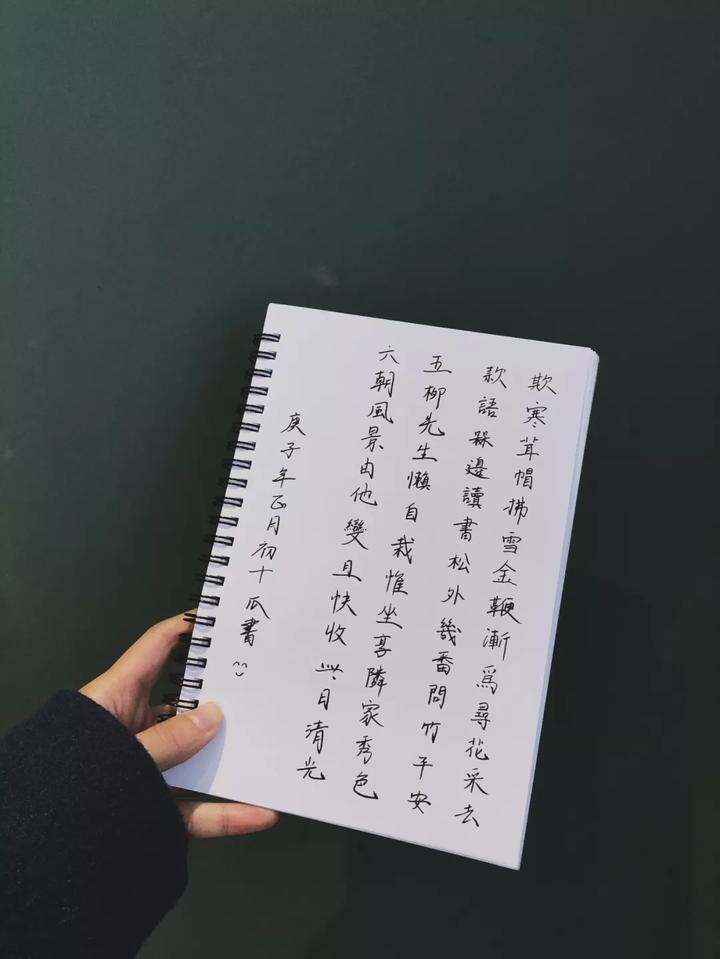 欺寒茸帽拂雪金鞭漸爲尋花采去
款語槑邊讀書松外幾番問竹平安
五柳先生懶自栽惟坐享隣家秀色
六朝風景由他變且快收此日清光
庚子年正月初十瓜書